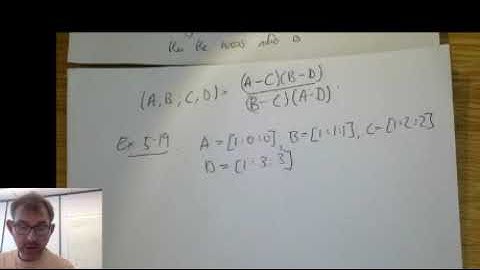 (A,B,C,D) = (A-C)(B-D) / (B-C)(A-D).
Ex 5.19 A=[1:0:0], B=[1:1:1], C=[1:2:2]
D=[1:3:3]